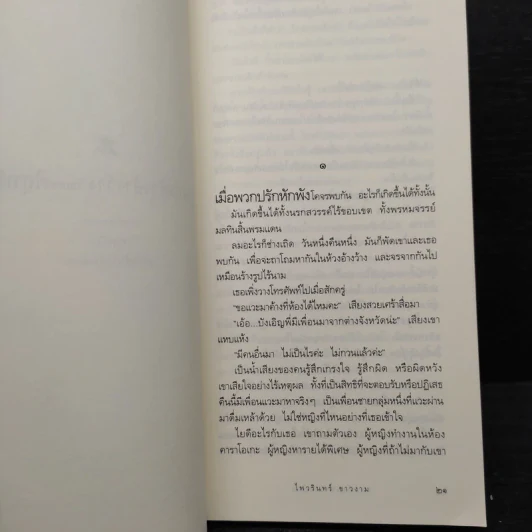 ๑
เมื่อพวกปรักหักพังโคจรพบกัน อะไรก็เกิดขึ้นได้ทั้งนั้น
มันเกิดขึ้นได้ทั้งนรกสวรรค์ไร้ขอบเขต ทั้งพรหมจรรย์
มลทินสิ้นพรมแดน
ลมอะไรก็ช่างเถิด วันหนึ่งคืนหนึ่ง มันก็พัดเขาและเธอ
พบกัน เพื่อจะถาโถมหากันในห้วงอ้างว้าง และจรจากกันไป
เหมือนร้างรูปไร้นาม
เธอเพิ่งวางโทรศัพท์ไปเมื่อสักครู่
"ขอแวะมาค้างที่ห้องได้ไหมคะ" เสียงสวยเศร้าสื่อมา
"เอ้อ...บังเอิญพี่มีเพื่อนมาจากต่างจังหวัดน่ะ" เสียงเขา
แหบแห้ง
"มีคนอื่นมา ไม่เป็นไรค่ะ ไม่กวนแล้วค่ะ"
เป็นน้ำเสียงของคนรู้สึกเกรงใจ รู้สึกผิด หรือผิดหวัง
เขาเสียใจอย่างไร้เหตุผล ทั้งที่เป็นสิทธิที่จะตอบรับหรือปฏิเสธ
คืนนี้มีเพื่อนแวะมาหาจริงๆ เป็นเพื่อนชายกลุ่มหนึ่งที่แวะผ่าน
มาดื่มเหล้าด้วย ไม่ใช่หญิงที่ไหนอย่างที่เธอเข้าใจ
ไยดีอะไรกับเธอ เขาถามตัวเอง ผู้หญิงทำงานในห้อง
คาราโอเกะ ผู้หญิงหารายได้พิเศษ ผู้หญิงที่ถ้าไม่มากับเขา
ไพวรินทร์ ขาวงาม
๒๑